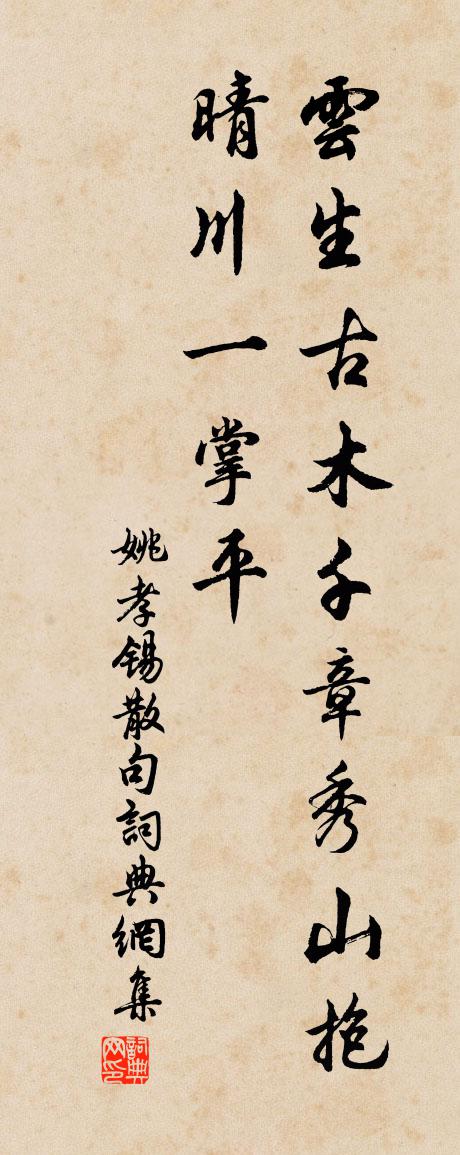 雲生古木千章秀山抱
晴川一掌平
姚孝锡散句詞典網集
詞典网印